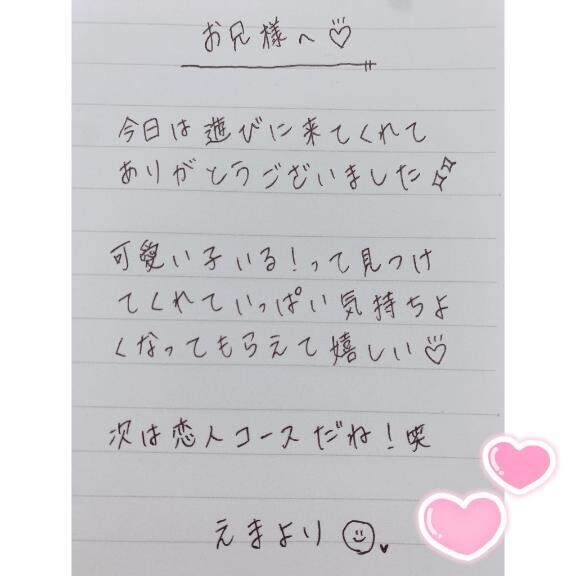 お兄様へ♡
今日は遊びに来てくれて
ありがとうございました✨
可愛い子いる!って見つけ
てくれていっぱい気持ちよ
くなってもらえて嬉しい♡
次は恋人コースだね!笑
えまより☺